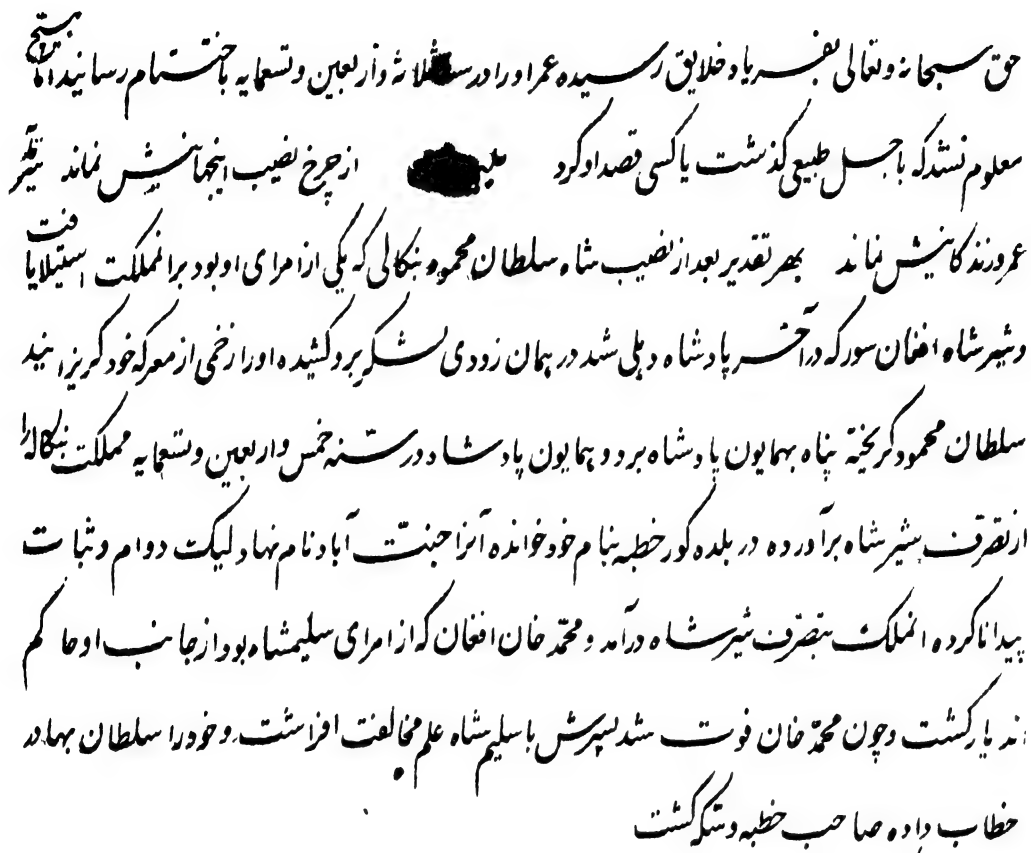 حق سبحانه وتعالی بفریاد خلایق رسیده عمر او را در سنه ثلاثه واربعین وتسعمایه باختتام رسانید اما هیچ
معلوم نشد که باجل طبیعی کذشت یا کسی قصد او کرد از چرخ نصیب اینجهانیش نماند
عمر وزندکانیش نماند بهر تقدیر بعد از نصیب شاه سلطان محمود بنکالی که یکی از امرای او بود بر انمملکت استیلا یافت
وشیر شاه افغان سور که در آخر پادشاه دهلی شد در همان زودی لشکر برو کشیده او را زخمی از معرکه خود کریزانید
سلطان محمود کریخته پناه بهمایون پادشاه برد و همایون پادشاه در سنه خمس واربعین وتسعمایه مملکت بنکاله را
از تصرف شیر شاه برآورده در بلده کور خطبه بنام خود خوانده آنرا جنت آباد نام نهاد لیکن دوام وثبات
پیدا ناکرده انملک بتصرف شیر شاه درآمد و محمد خان افغان که از امرای سلیمشاه بود از جانب او حاکم
ان دیار کشت وچون محمد خان فوت شد پسرش با سلیم شاه علم مخالفت افراشت وخود را سلطان بهادر
خطاب داده صاحب خطبه وسکه کشت